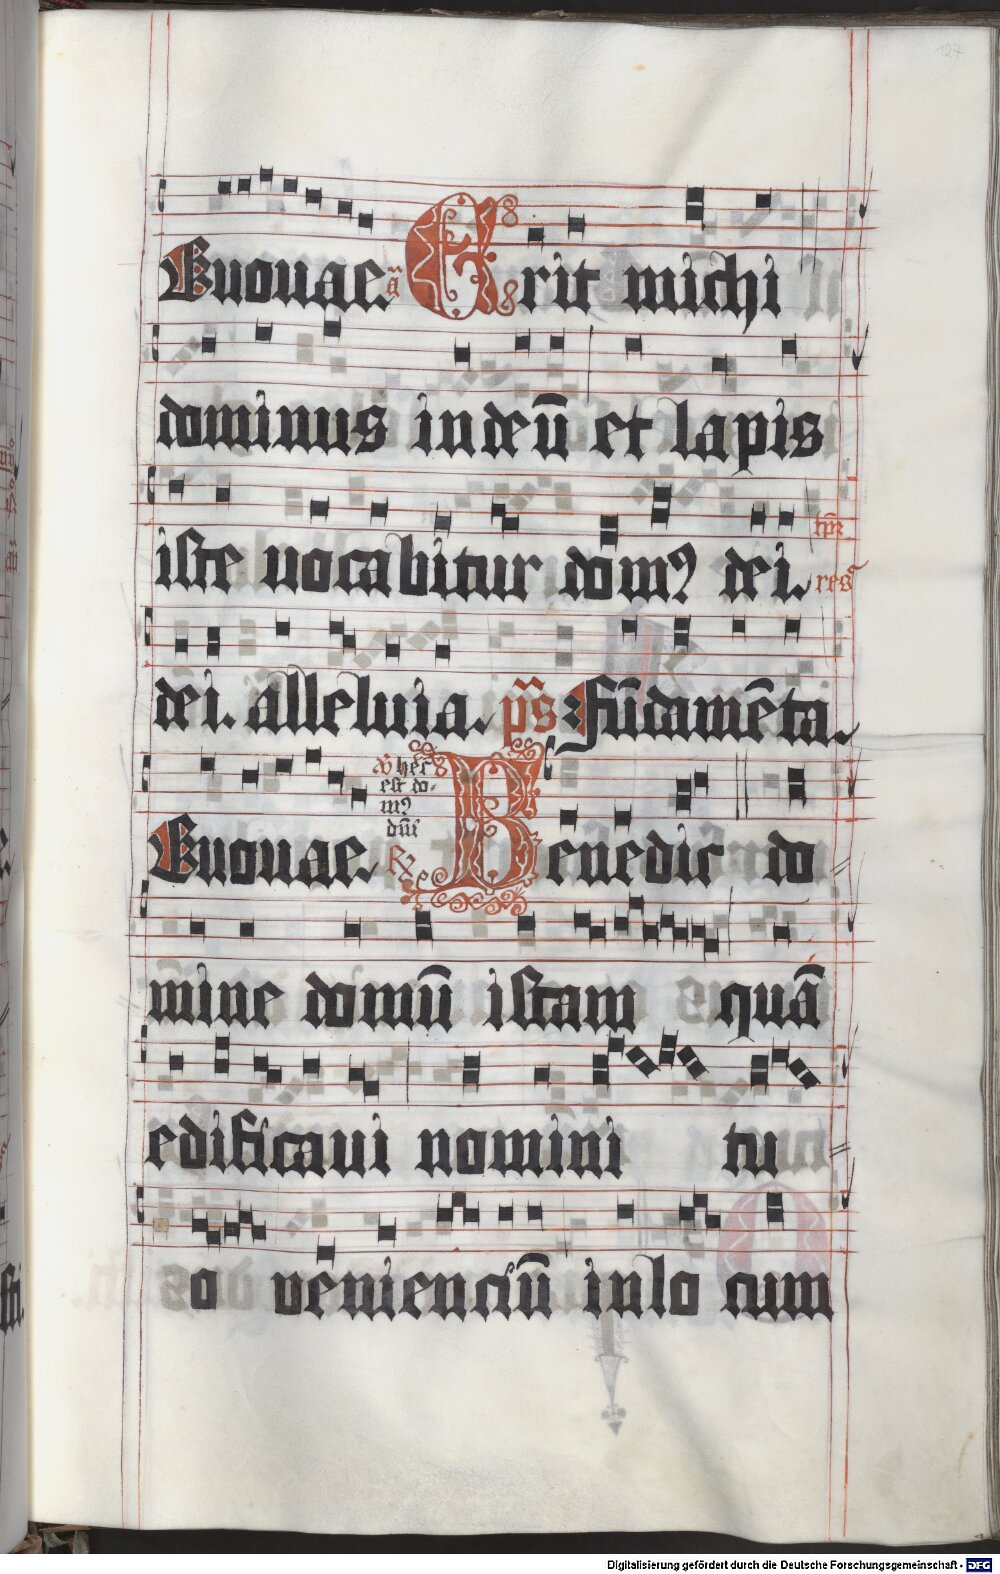 127
Euouae. a͞ Erit michi
dominus in deū et lapis
iste uocabitur domꝰ dei. tꝑr
dei. alleluia. p̄s Fūdamēta. res
Euouae. ℣ hec est domꝰ dn̄i ℟ Benedic do
mine domū istam quā
edificaui nomini tu
o venienciū in lo cum
Digitalisierung gefördert durch die Deutsche Forschungsgemeinschaft - DFG